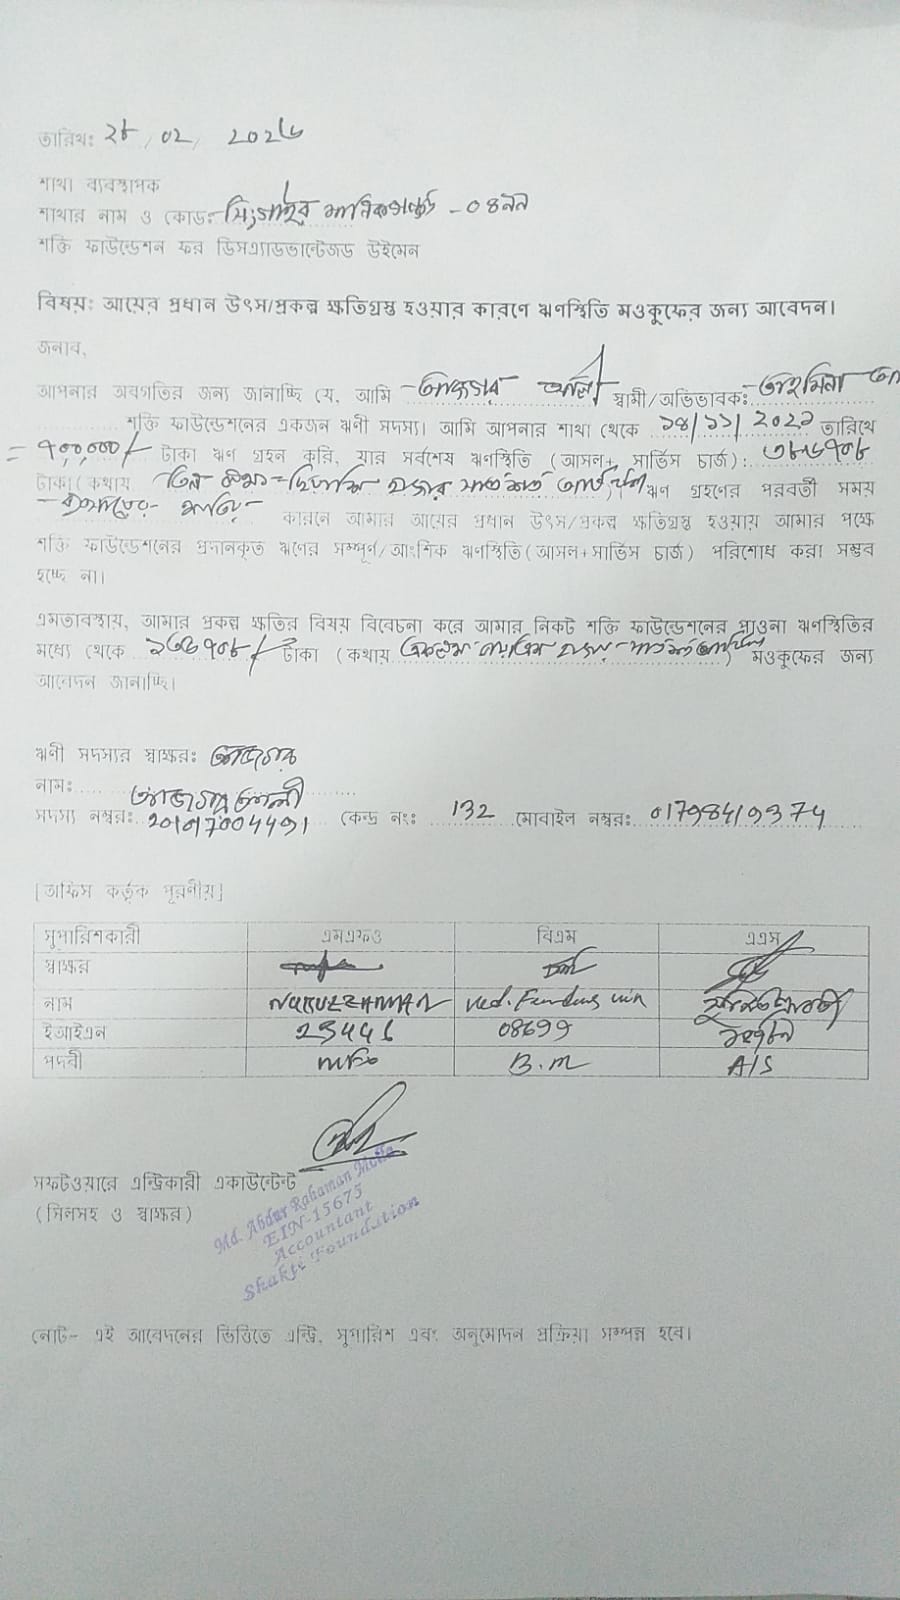 তারিখঃ ২৮/02/ 202৬
শাখা ব্যবস্থাপক
শাখার নাম ও কোডঃ সিংগাইর মানিকগঞ্জ - ০৪৯৯
শক্তি ফাউন্ডেশন ফর ডিসএ্যাডভান্টেজড উইমেন
বিষয়ঃ আয়ের প্রধান উৎস/প্রকল্প ক্ষতিগ্রস্ত হওয়ার কারণে ঋণস্থিতি মওকুফের জন্য আবেদন।
জনাব,
আপনার অবগতির জন্য জানাচ্ছি যে, আমি আজগর আলী স্বামী/অভিভাবকঃ তাহমিনা
শক্তি ফাউন্ডেশনের একজন ঋণী সদস্য। আমি আপনার শাখা থেকে তারিখে
= ৭০০,০০০/- টাকা ঋণ গ্রহন করি, যার সর্বশেষ ঋণস্থিতি (আসল+ সার্ভিস চার্জ): ৩৮৬৭০৮
টাকা (কথায় তিন লক্ষ হাজার সাত শত আট) ঋণ গ্রহণের পরবর্তী সময়
কারনে আমার আয়ের প্রধান উৎস/প্রকল্প ক্ষতিগ্রস্ত হওয়ায় আমার পক্ষে
শক্তি ফাউন্ডেশনের প্রদানকৃত ঋণের সম্পূর্ণ/আংশিক ঋণস্থিতি(আসল+সার্ভিস চার্জ) পরিশোধ করা সম্ভব
হচ্ছে না।
এমতাবস্থায়, আমার প্রকল্প ক্ষতির বিষয় বিবেচনা করে আমার নিকট শক্তি ফাউন্ডেশনের পাওনা ঋণস্থিতির
মধ্যে থেকে ১৩৬৭০৮/- টাকা (কথায় একলক্ষ হাজার সাতশত) মওকুফের জন্য
আবেদন জানাচ্ছি।
ঋণী সদস্যর স্বাক্ষরঃ আজগর
নামঃ আজগর আলী
সদস্য নম্বরঃ কেন্দ্র নংঃ 132 মোবাইল নম্বরঃ
[অফিস কর্তৃক পূরণীয়]
সুপারিশকারী এমএফও বিএম এএস
স্বাক্ষর
নাম NURUZZAMAN
ইআইএন 08699
পদবী MFO B.M A/S
সফটওয়ারে এন্ট্রিকারী একাউন্টেন্ট
(সিলসহ ও স্বাক্ষর)
Md. Abdur Rahaman Molla
EIN-15675
Accountant
Shakti Foundation
নোট- এই আবেদনের ভিত্তিতে এন্ট্রি, সুপারিশ এবং অনুমোদন প্রক্রিয়া সম্পন্ন হবে।